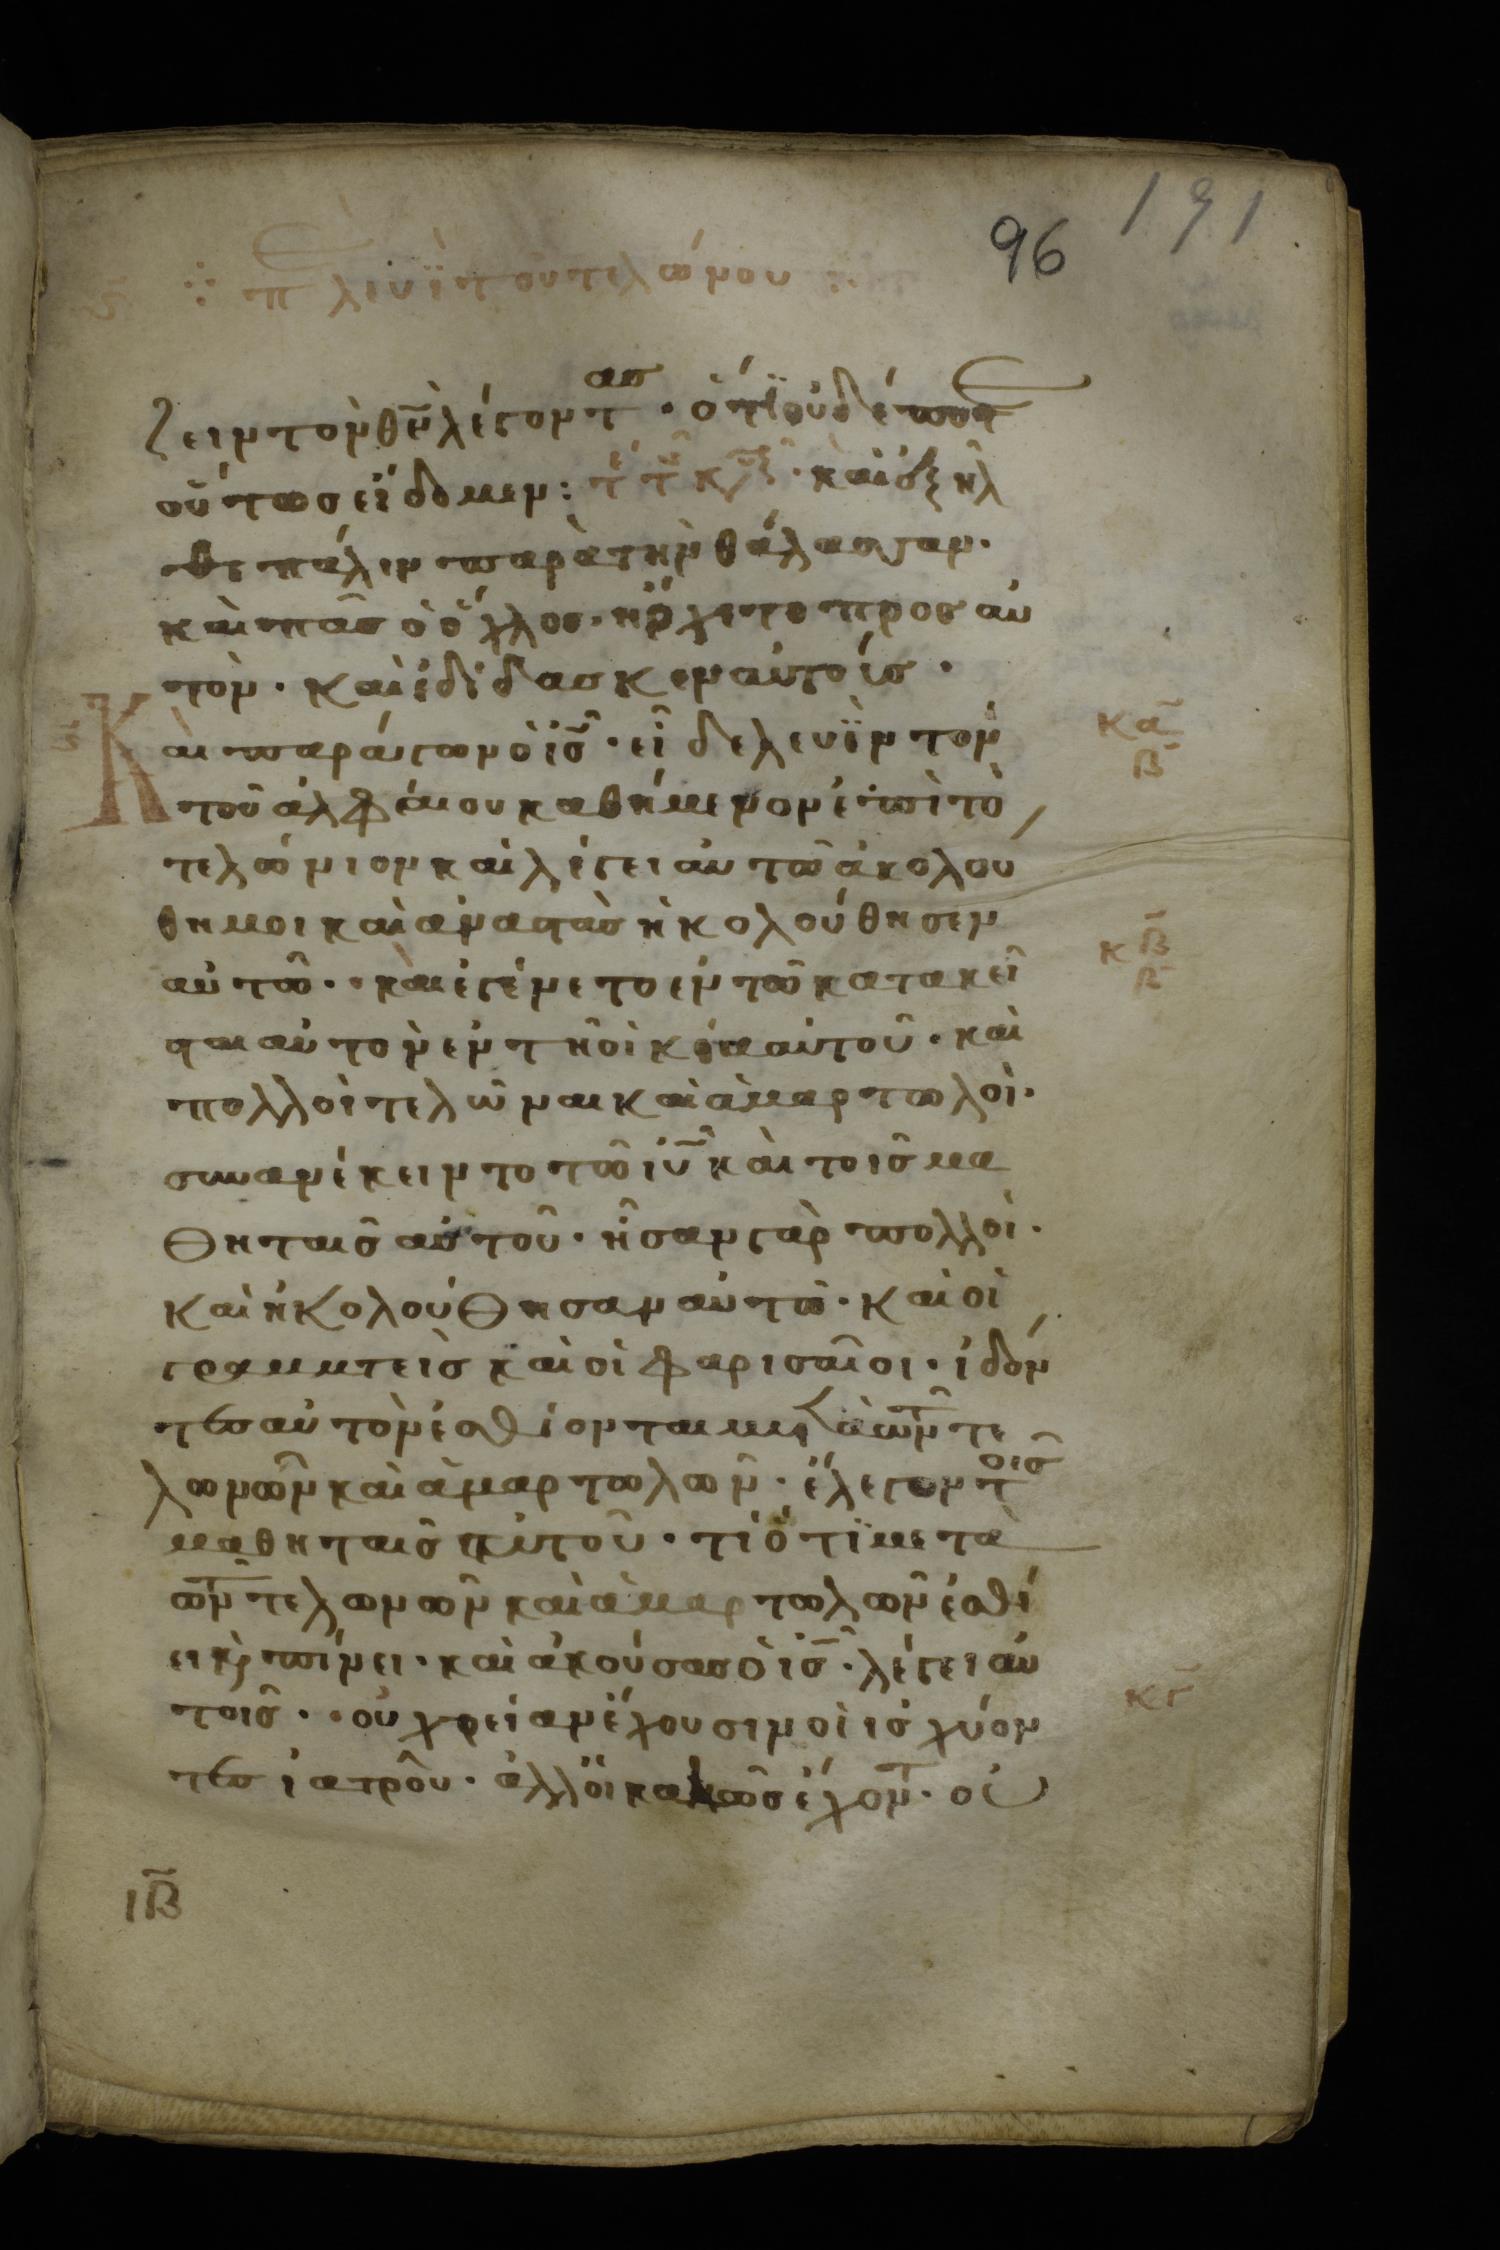 96
191
ϛ ⁘ πε λευὶ τοῦ τελώνου
ζειν τὸν θν λέγοντας · ὅτι οὐδέποτε
οὕτωσ εἴδομεν : καὶ ἐξῆλ
θε πάλιν παρὰ τὴν θάλασσαν ·
καὶ πᾶσ ὁ ὄχλοσ · ἤρχετο προσ αυ
τὸν · καὶ ἐδίδασκεν αὐτοίσ ·
Καὶ παράγων ὁ ἰσ · εἶδε λευῒν τὸν
τοῦ ἀλφαίου καθήμενον ἐπὶ τὸ
τελώνιον καὶ λέγει αὐτῶ ἀκολού
θη μοι καὶ ἀναστὰσ ἠκολούθησεν
αὐτῶ · καὶ ἐγένετο ἐν τῶ κατακεῖ
σαι αὐτὸν ἐν τῆ οἰκία αὐτοῦ · καὶ
πολλοὶ τελῶναι καὶ ἁμαρτωλοὶ ·
συνανέκειντο τῶ ιυ καὶ τοισ μα
θηταισ αὐτοῦ · ἦσαν γὰρ πολλοὶ ·
καὶ ἠκολούθησαν αὐτῶ · καὶ οἱ
γραμμτεὶσ καὶ οἱ φαρισαῖοι · ἰδόν
τεσ αὐτὸν ἐσθίοντα μετὰ τῶν τε
λωνῶν καὶ ἁμαρτωλῶν · ἔλεγον τοῖσ
μαθηταισ αὐτοῦ · τί ὅτι μετὰ
τῶν τελωνῶν καὶ ἁμαρτωλῶν ἐσθί
ει κ πίνει · καὶ ἀκούσασ ὁ ισ · λέγει αὐ
τοισ · οὐ χρείαν ἔχουσιν οἱ ἰσχύον
τεσ ἰατροῦ · ἀλλ οἱ κακῶσ ἔχοντ · οὐ
κα
β
κβ
β
κγ
ιβ